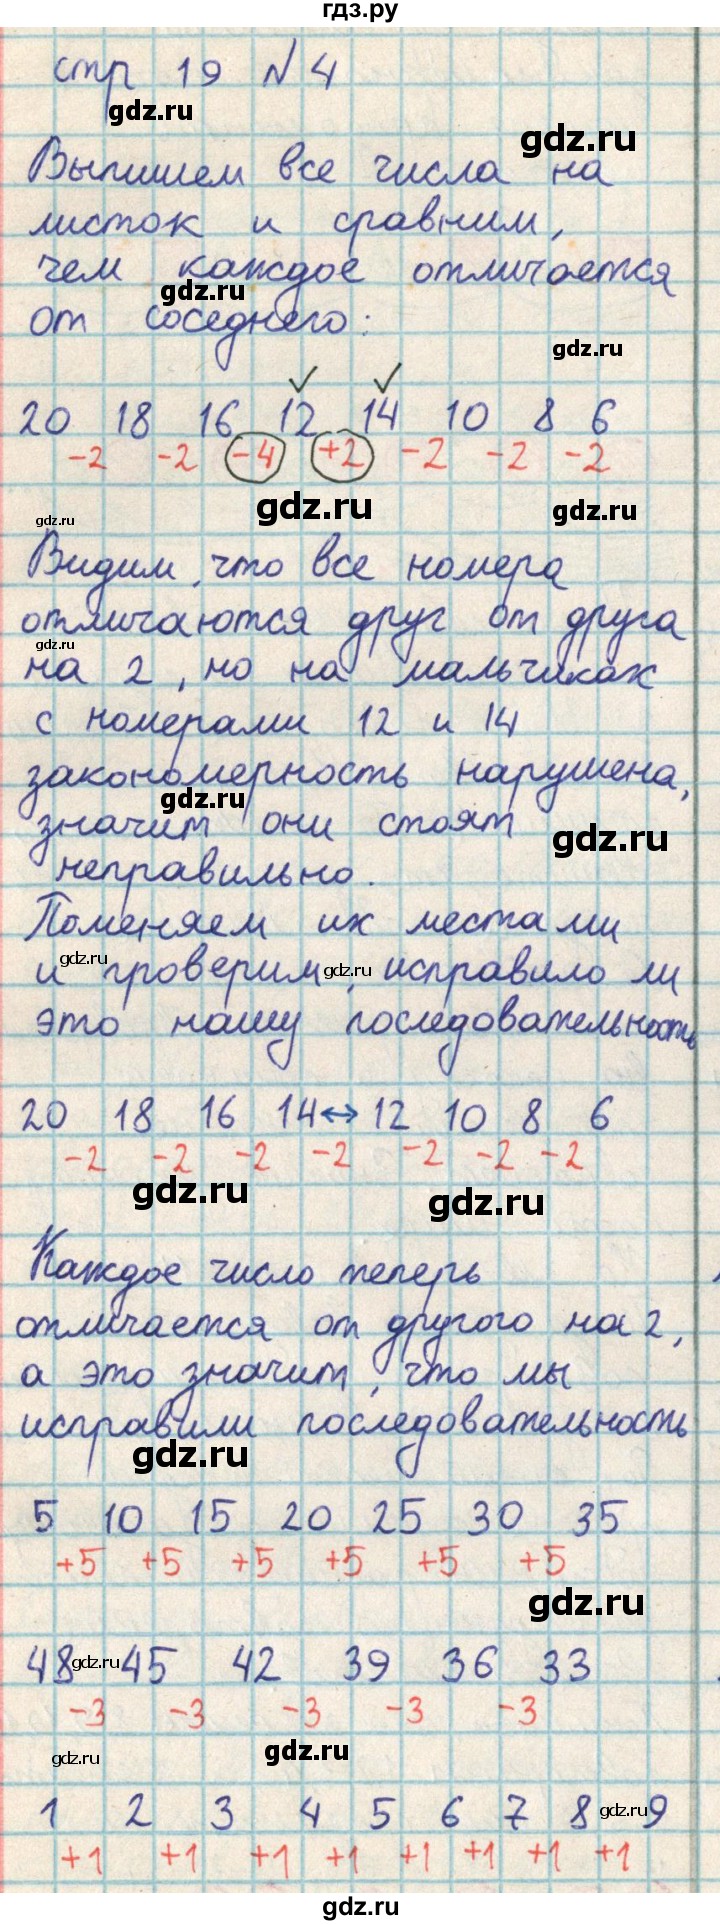 гдз.ру
стр 19 № 4
gdz.ru
gdz.ru
Выпишем все числа на
листок и сравним,
чем каждое отличается
gdz.ru
от соседнего:
gdz.ru
20 18 16 12 14 10 8 6
-2 -2 -4 +2 -2 -2 -2
gdz.ru
gdz.ru
gdz.ru
Видим, что все номера
отличаются друг от друга
gdz.ru
на 2, но на мальчиках
с номерами 12 и 14
закономерность нарушена,
gdz.ru
значит они стоят
gdz.ru
неправильно.
Поменяем их местами
gdz.ru
gdz.ru
и проверим, исправило ли
это нашу последовательность
20 18 16 14 ↔ 12 10 8 6
-2 -2 -2 -2 -2 -2 -2
gdz.ru
gdz.ru
Каждое число теперь
отличается от другого на 2,
а это значит, что мы
исправили последовательность
gdz.ru
5 10 15 20 25 30 35
+5 +5 +5 +5 +5 +5
gdz.ru
48 gdz.ru 45 42 39 36 33
-3 -3 -3 -3 -3
gdz.ru
gdz.ru
1 2 3 4 5 6 7 8 gdz.ru 9
+1 +1 +1 +1 +1 +1 +1 +1
gdz.ru